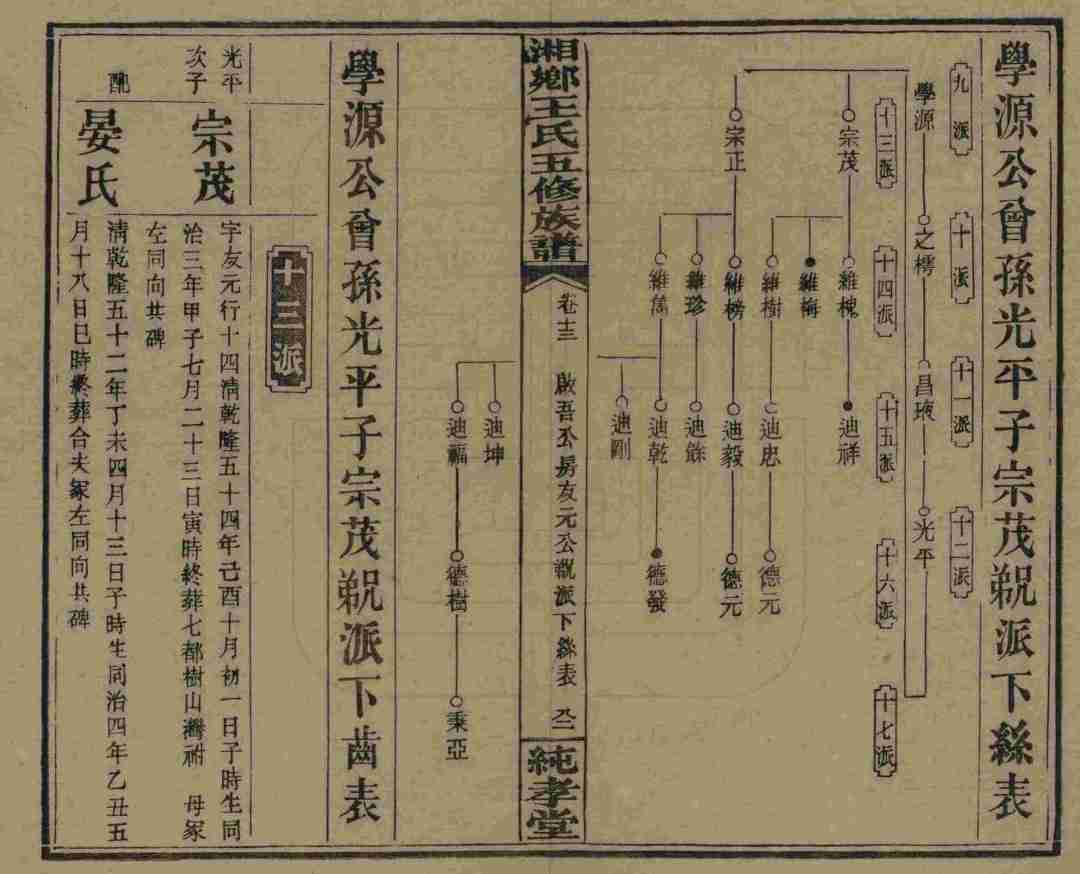 學源公曾孫光平子宗茂覡派下絲表
九派
十派
十一派
十二派
學源
之樗
昌琅
光平
十三派
十四派
十五派
十六派
十七派
宗茂
維槐
迪祥
維梅
維樹
迪忠
德元
宗正
維榜
迪毅
德元
維珍
迪餘
維雋
迪乾
德發
迪剛
湘鄉王氏五修族譜
卷十三
啟吾公房友元公覡派下絲表
純孝堂
迪坤
迪福
德樹
秉亞
學源公曾孫光平子宗茂覡派下齒表
十三派
光平
次子
宗茂
字友元行十四清乾隆五十四年己酉十月初一日子時生同
治三年甲子七月二十三日寅時終葬七都樹山灣祔 母冢
左同向共碑
配
晏氏
清乾隆五十二年丁未四月十三日子時生同治四年乙丑五
月十八日巳時終葬合夫冢左同向共碑